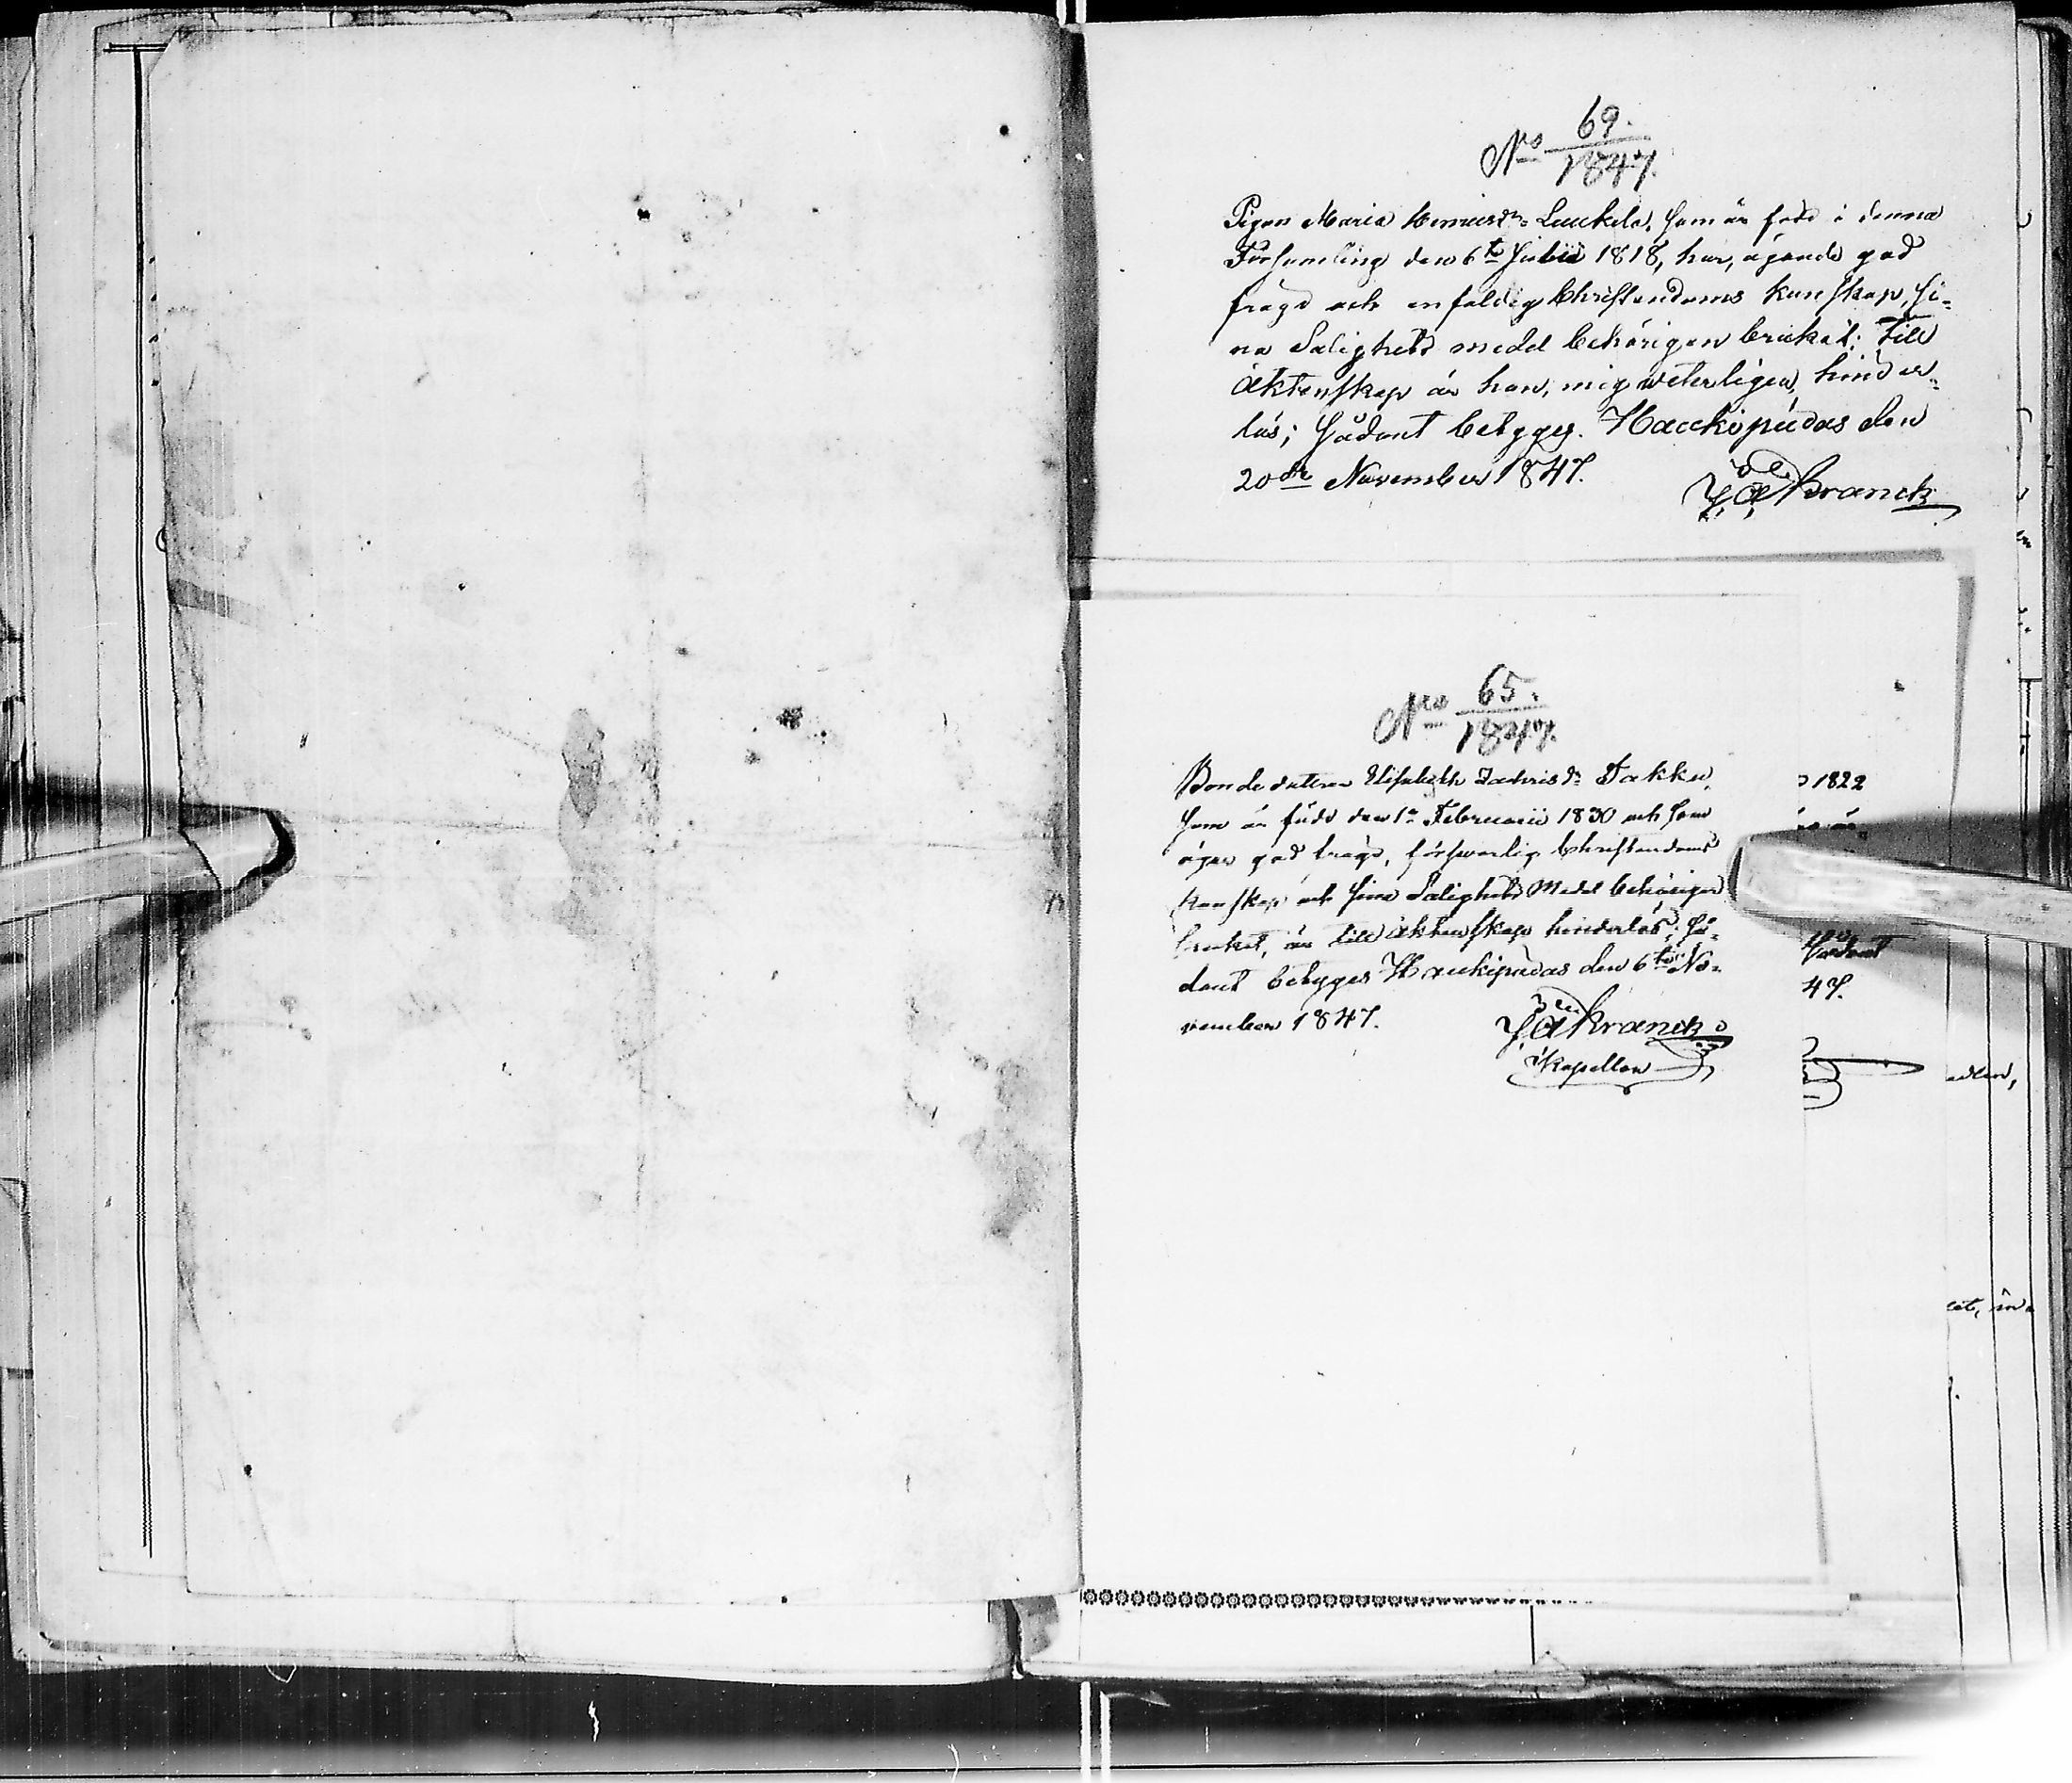 No 69.
1847.
Pigan Maria Henricsdr Luukela, som är född i denna
Församling den 6te Julii 1818, har, ägande god
frägd och enfaldig Christendoms kunskap, si-
na Salighets medel behörigen brukat; till
äktenskap är hon, mig veterligen, hinder-
lös; sådant betygas. Haukipudas den
20de November 1847.
Franck
No 65.
1847.
Bonde dottren Elisabeth Zachrisdr Jakku,
som är född den 1a Februarii 1830 och som
äger god frägd, försvarlig Christendoms
kunskap och sina Salighets Medel behörigen
brukat, är till äktenskap hinderlös; så-
dant betygas Haukipudas den 6te No-
vember 1847.
Franck
Kapellan
1822
47.